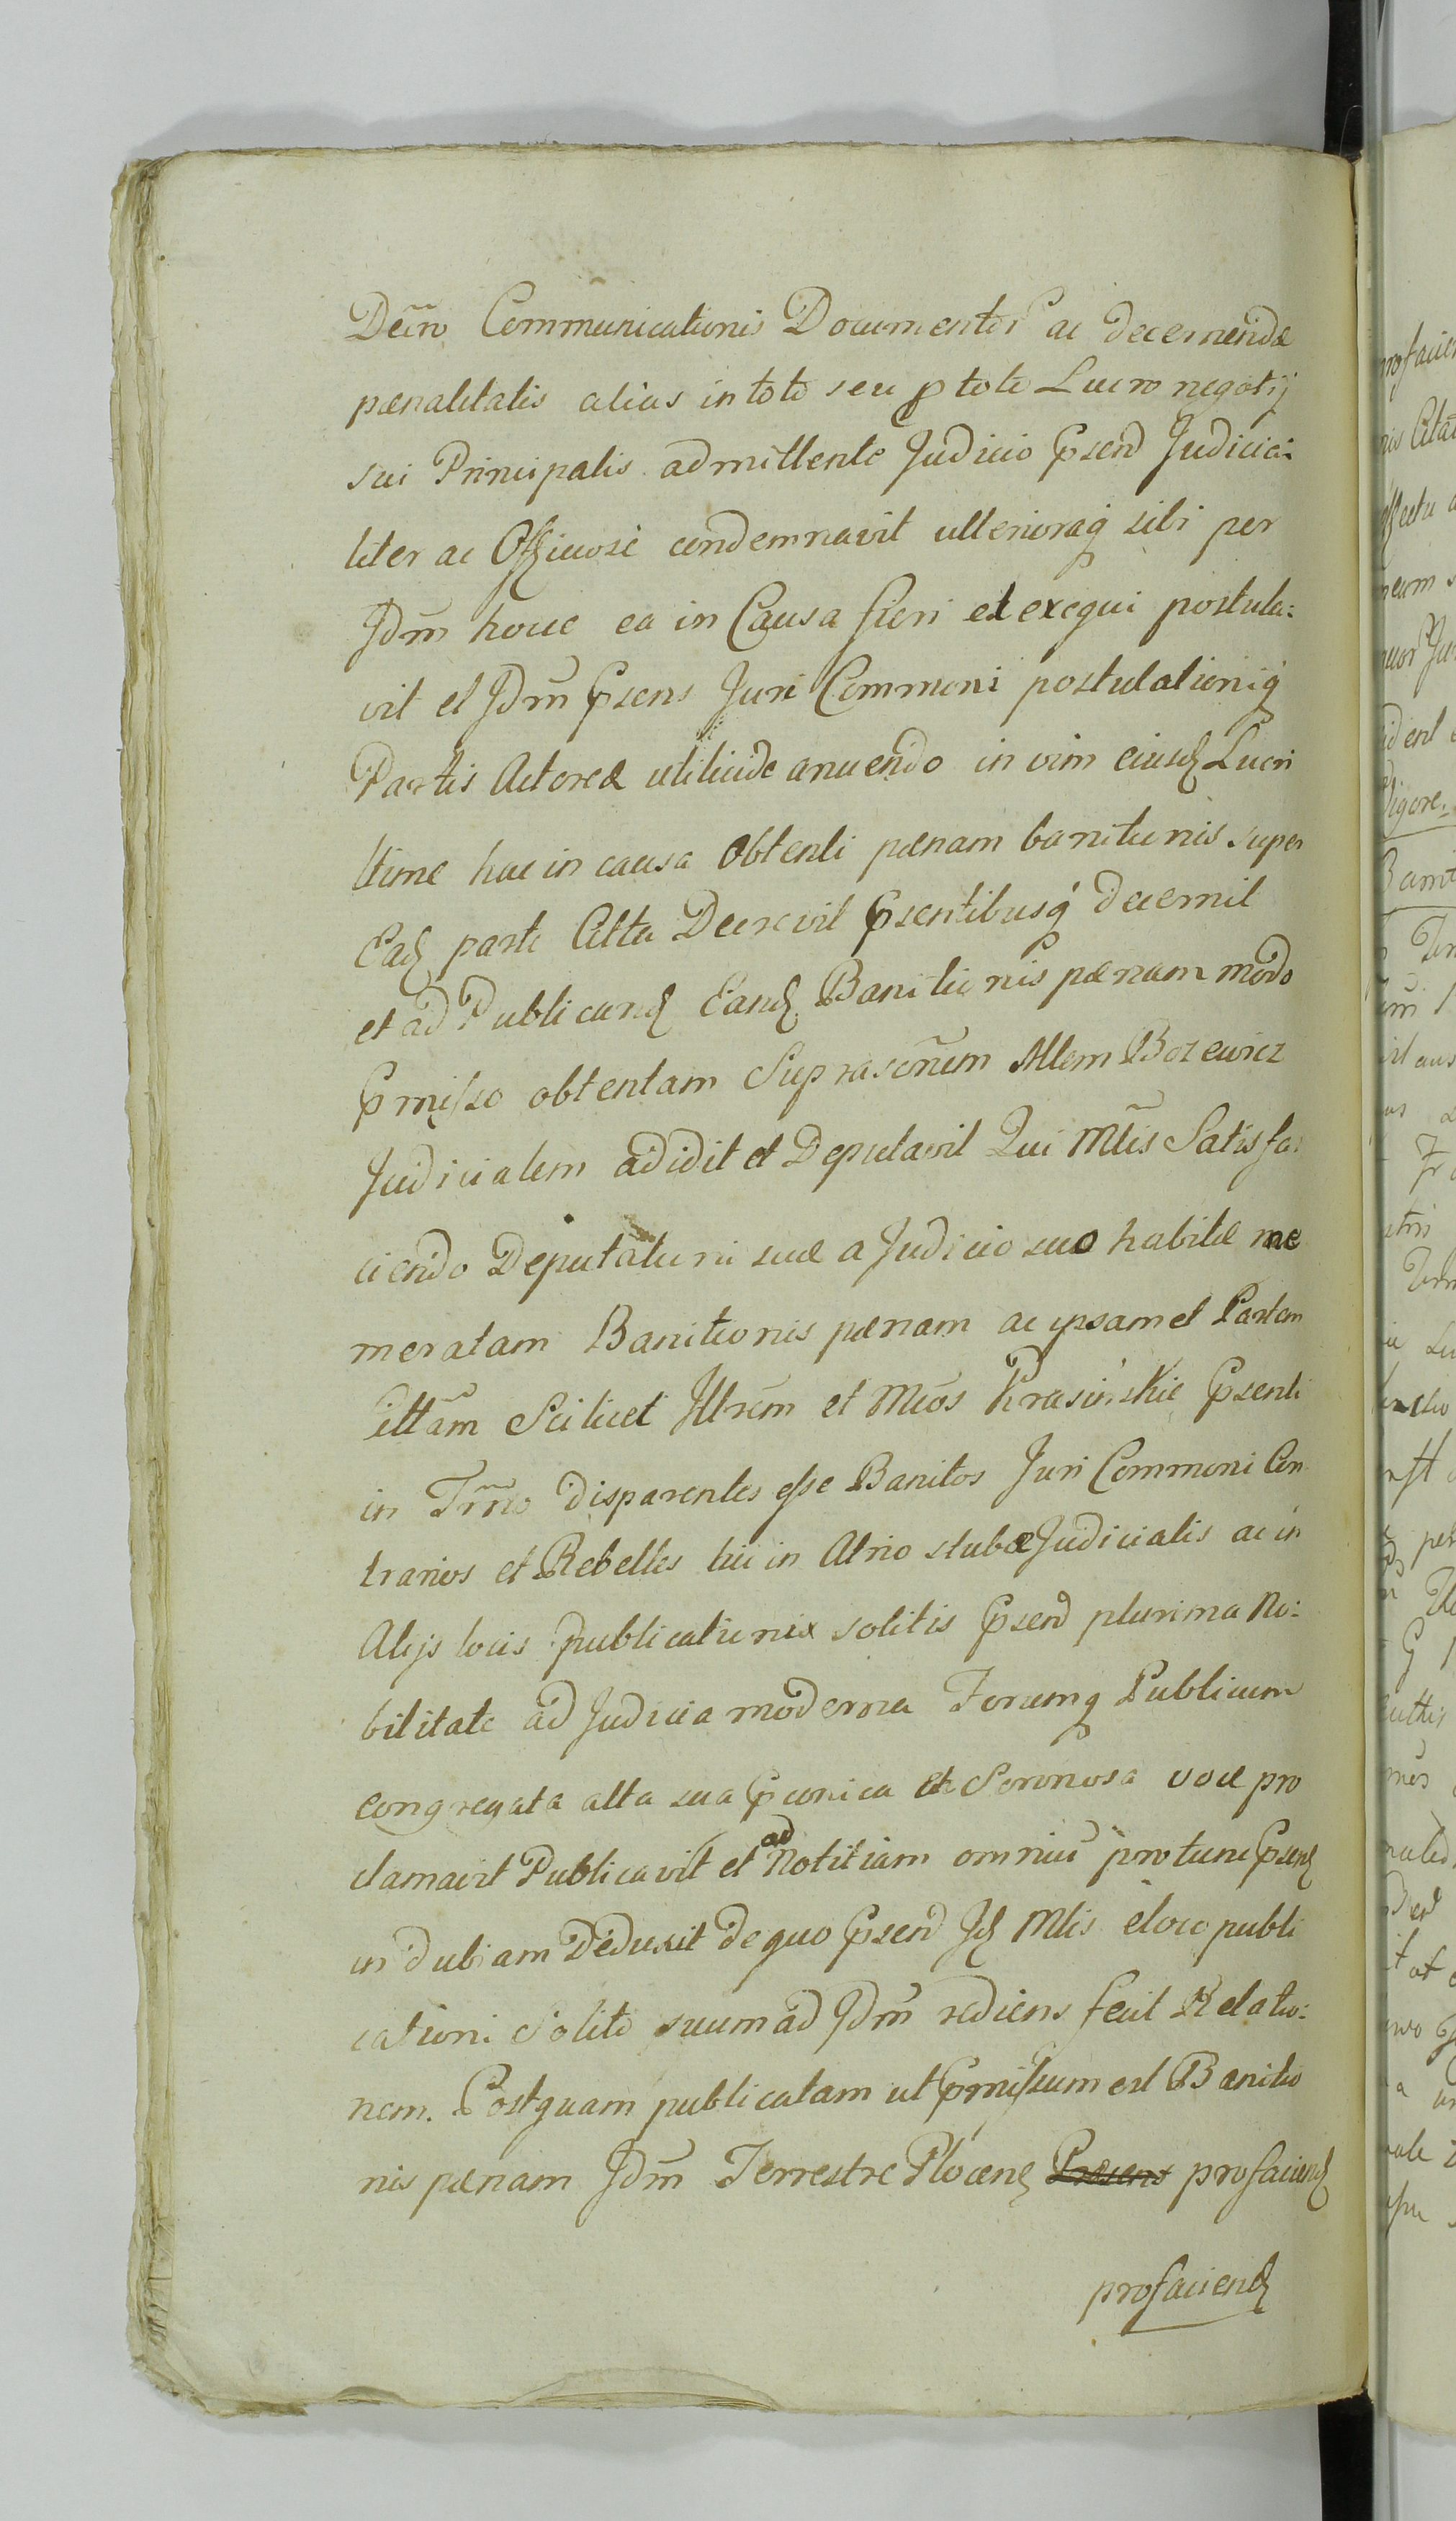 Decro Communicationis Documentor ac decernendæ
pænalitatis alias in toto seu p toto Lucro negotij
sui Principalis admittente Judicio Psend Judicia-
liter ac Officiose condemnavit ulterioraq sibi per
Jdm hocce ea in Causa fieri et exequi postula:
vit et Jdm Psens Juri Communi postulationiq
Partis Actoreæ anuendo in vim eiusd Lucri
ltime hac in causa Obtenti pænam banitionis super
Ead parte Citta Decrevit Psentibusq decernit
et ad Publicand Eand Banitionis pænam modo
Pmisso obtentam Suprascrm Mlem Bozewicz
Judicialem addidit et Deputavit Qui Mlis Satisfa:
ciendo Deputationi suæ a Judicio suo habitæ me
meratam Banitionis pænam ac ipsamet Partem
Cittam Scilicet Jllrem et Mcos Krasinskie Psenti
in Trno disparentes esse Banitos Juri Communi Con
trarios et Rebelles hic in Atrio stubæ Judicialis ac in
Alijs locis publicationis solitis Psend plurima No:
bilitate ad Judicia moderna Forumq Publicum
congregata alta sua Pconica et Sonorosa voce pro
clamavit Publicavit et ad Notitiam omniu protunc Psend
indubiam Deduxit de quo Psend Jd Mlis e loco publi
cationi Solito suum ad Jdm rediens fecit Relatio:
nem. Postquam publicatam ut Pmissum est Banitio
nis pænam Jdm Terrestre Plocens Præsens profaciend
profaciend